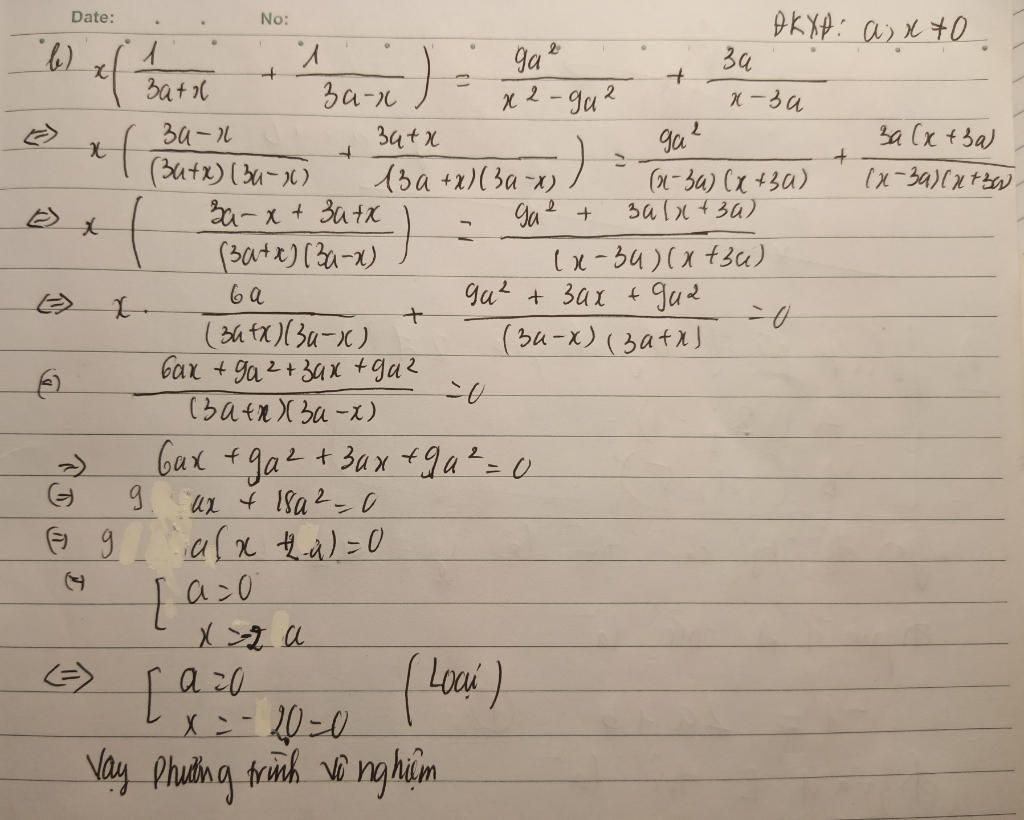 Date: . . No:
ĐKXĐ: a; x ≠ 0
b) x(1/(3a+x) + 1/(3a-x)) = 9a²/(x²-9a²) + 3a/(x-3a)
<=> x((3a-x)/((3a+x)(3a-x)) + (3a+x)/((3a+x)(3a-x))) = 9a²/((x-3a)(x+3a)) + 3a(x+3a)/((x-3a)(x+3a))
<=> x((3a-x+3a+x)/((3a+x)(3a-x))) = (9a²+3a(x+3a))/((x-3a)(x+3a))
<=> x. 6a/((3a+x)(3a-x)) + (9a²+3ax+9a²)/((3a-x)(3a+x)) = 0
<=> (6ax+9a²+3ax+9a²)/((3a+x)(3a-x)) = 0
=> 6ax + 9a² + 3ax + 9a² = 0
<=> 9ax + 18a² = 0
<=> 9a(x+2a) = 0
<=> [ a=0
x=-2a
<=> [ a=0 (Loại)
x = -2.0=0
Vậy phương trình vô nghiệm